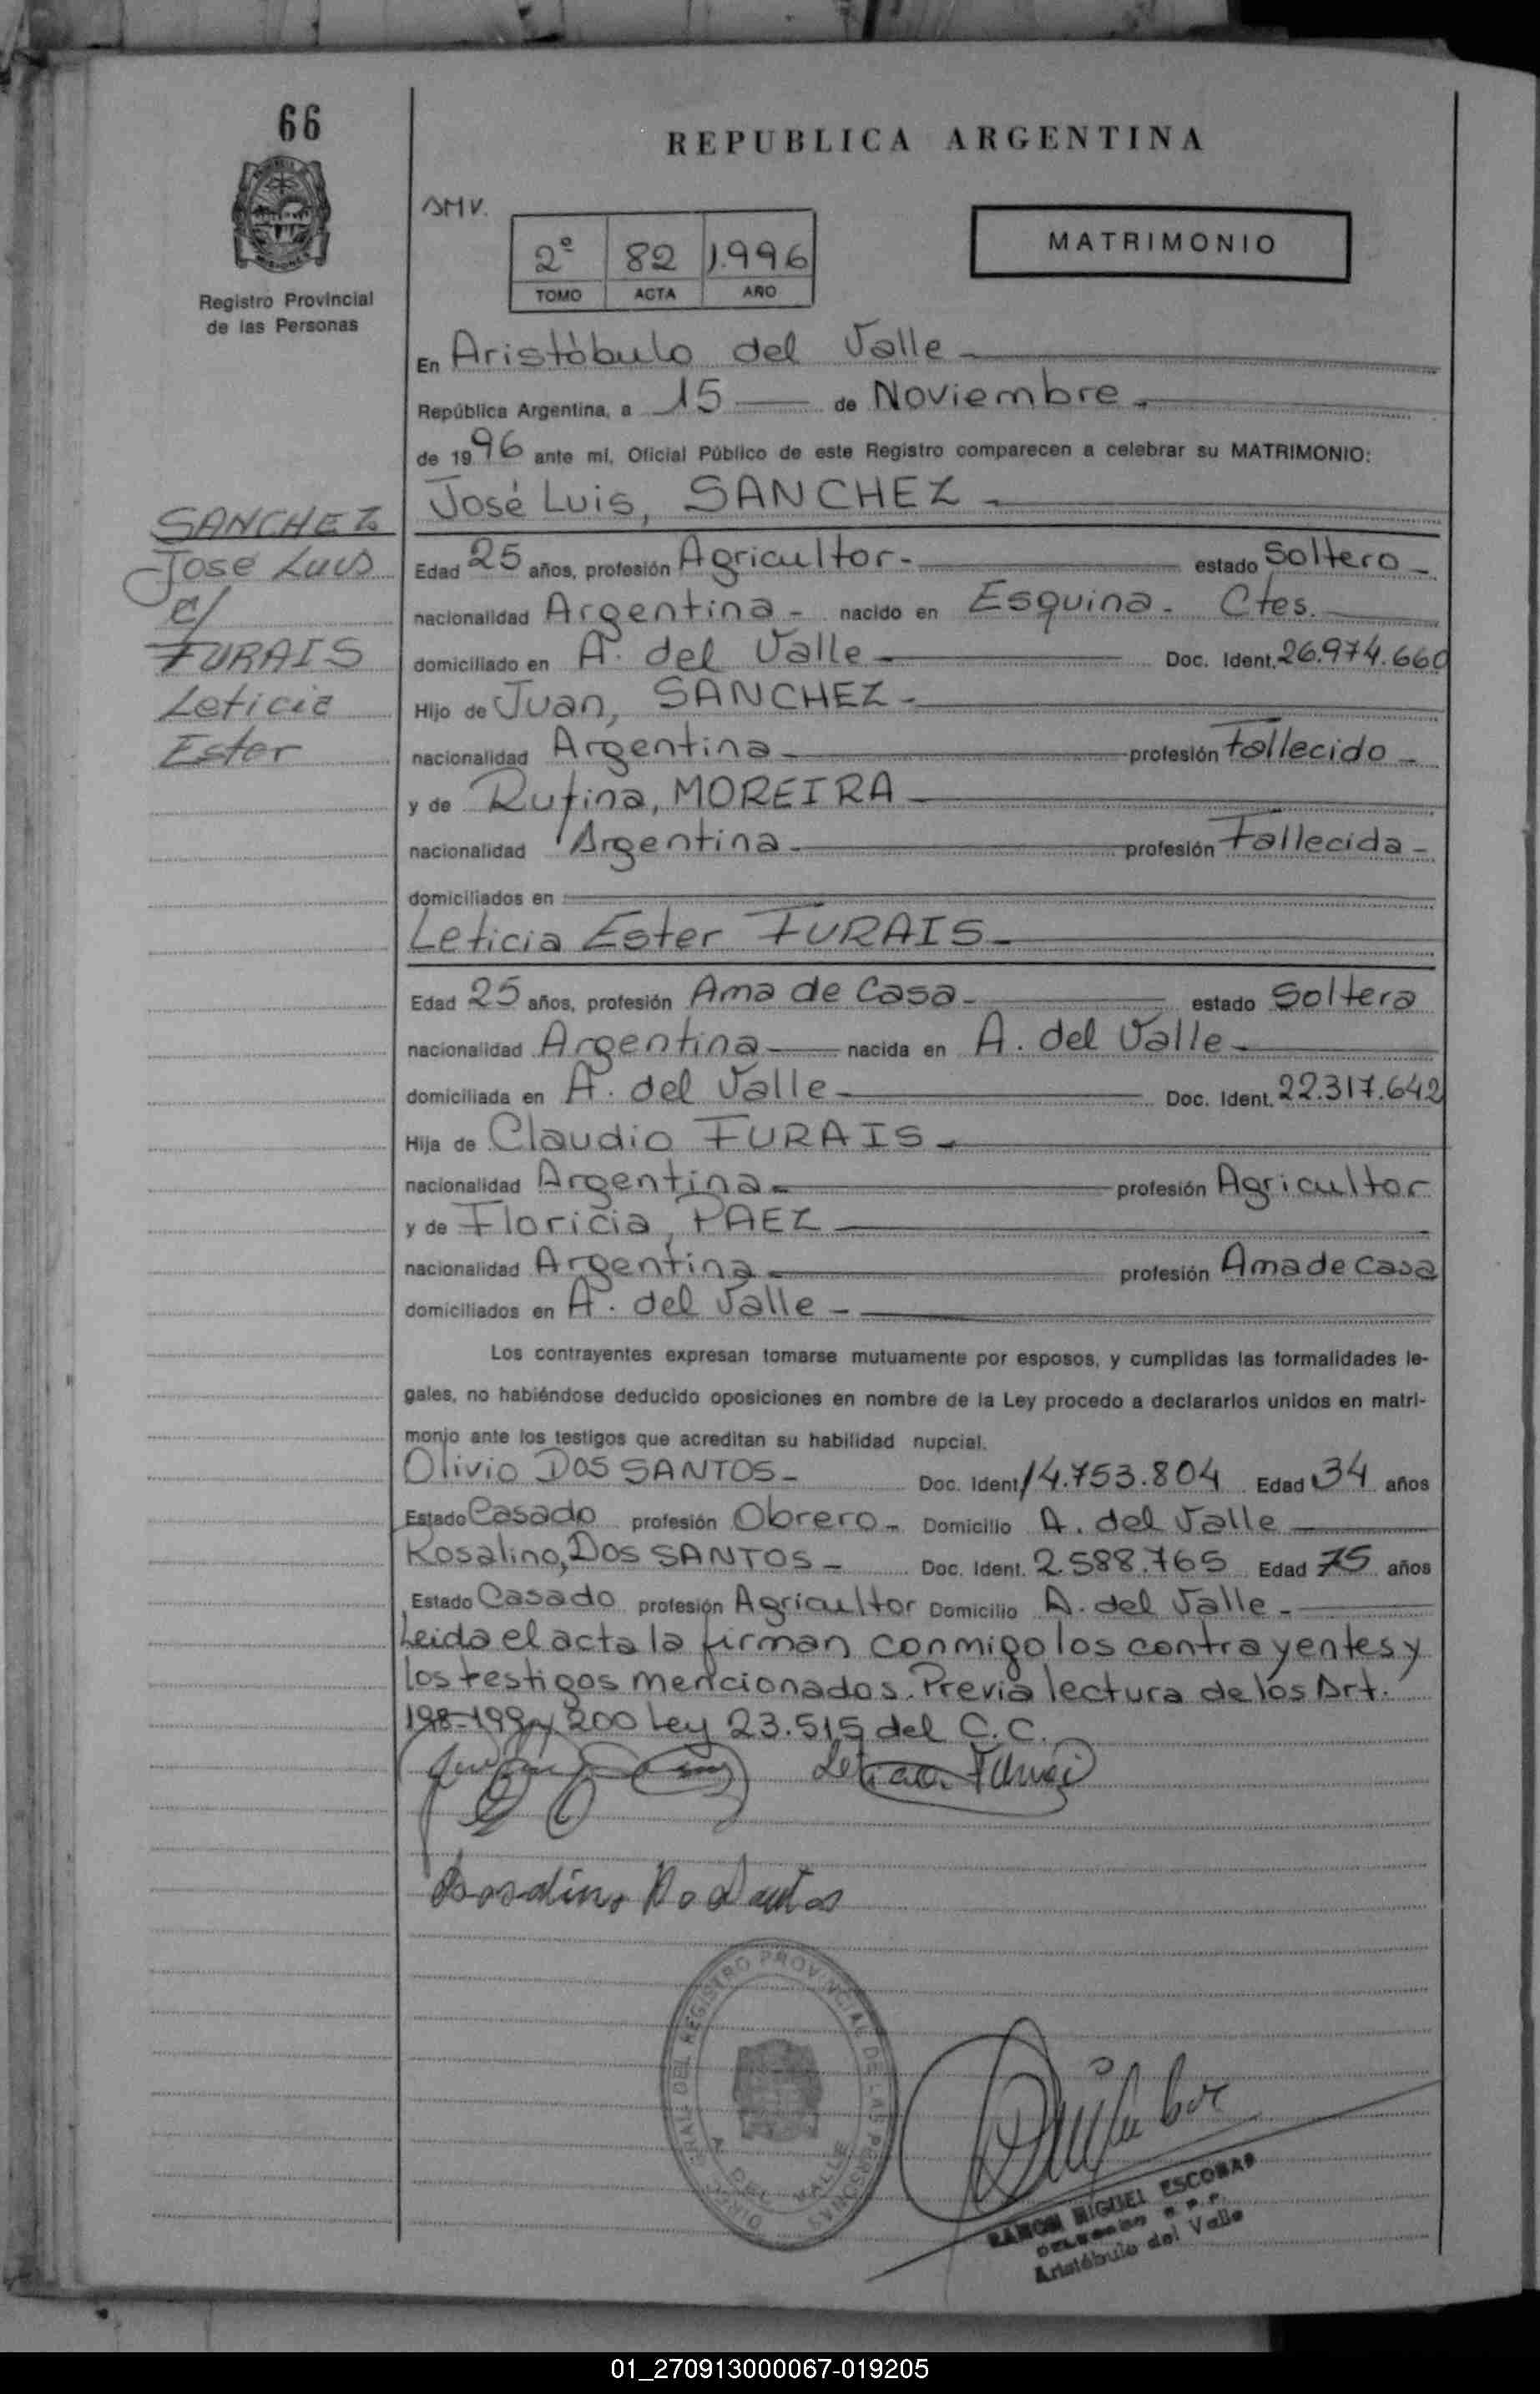 66
REPUBLICA ARGENTINA
SMV.
2º 82 1.996
TOMO ACTA AÑO
MATRIMONIO
Registro Provincial
de las Personas
En Aristóbulo del Valle
República Argentina, a 15 de Noviembre
de 1996 ante mí, Oficial Público de este Registro comparecen a celebrar su MATRIMONIO:
José Luis, SANCHEZ
SANCHEZ
José Luis
c/
FURAIS
Leticia
Ester
Edad 25 años, profesión Agricultor.- estado Soltero
nacionalidad Argentina - nacido en Esquina - Ctes.
domiciliado en A. del Valle Doc. Ident. 26.974.660
Hijo de Juan, SANCHEZ
nacionalidad Argentina profesión Fallecido
y de Rufina, MOREIRA
nacionalidad Argentina profesión Fallecida
domiciliados en
Leticia Ester FURAIS
Edad 25 años, profesión Ama de Casa - estado Soltera
nacionalidad Argentina nacida en A. del Valle
domiciliada en A. del Valle Doc. Ident. 22.317.642
Hija de Claudio FURAIS
nacionalidad Argentina profesión Agricultor
y de Floricia, PAEZ
nacionalidad Argentina profesión Ama de Casa
domiciliados en A. del Valle -
Los contrayentes expresan tomarse mutuamente por esposos, y cumplidas las formalidades le-
gales, no habiéndose deducido oposiciones en nombre de la Ley procedo a declararlos unidos en matri-
monio ante los testigos que acreditan su habilidad nupcial.
Olivio DOS SANTOS - Doc. Ident. 14.753.804 Edad 34 años
Estado Casado profesión Obrero - Domicilio A. del Valle
Rosalino, DOS SANTOS - Doc. Ident. 2.588.765 Edad 75 años
Estado Casado profesión Agricultor Domicilio A. del Valle -
Leida el acta la firman conmigo los contrayentes y
los testigos mencionados. Previa lectura de los Art.
198-199 y 200 Ley 23.515 del C.C.
DIREC. GRAL. DEL REGISTRO PROVINCIAL DE LAS PERSONAS
A. DEL VALLE
RAMON MIGUEL ESCOBAR
Aristóbulo del Valle
01_270913000067-019205